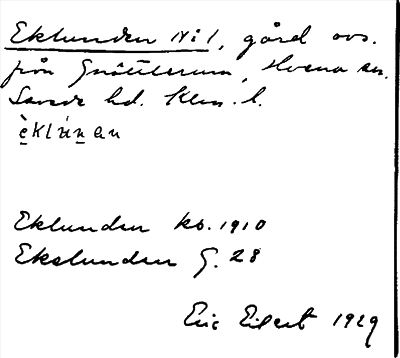 Eklunden N:1, gård avs.
från Gnöttlerum, Hvena sn.
Sevede hd. Klm. l.
èklùnan
Eklunden kb. 1910
Ekelunden G. 28
Eric Eilert 1929